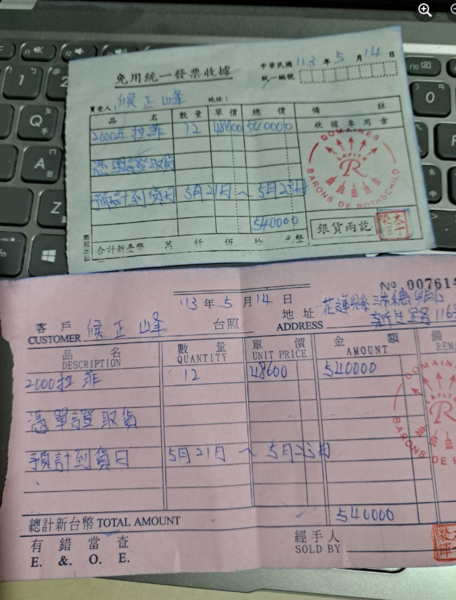 免用統一發票收據
中華民國 113 年 5 月 14 日
統一編號
買受人: 候正峰 地址:
品名 數量 單價 總價 備註
2000年拉菲 12 48600 540000 收據專用章
憑單證取貨
預計到貨日 5月21日 ~ 5月23日
540000
合計新臺幣 萬 仟 佰 拾 元整
銀貨兩訖
DOMAINES
LAFITE
R
BARONS DE ROTHSCHILD
No. 007614
113 年 5 月 14 日
客戶 候正峰 台照 地址 花蓮縣
CUSTOMER ADDRESS
品名 數量 單價 金額
DESCRIPTION QUANTITY UNIT PRICE AMOUNT REMA
2000拉菲 12 48600 540000
憑單證取貨
預計到貨日 5月21日 ~ 5月23日
DOMAIN
R
BARONS DE RO
總計新台幣 TOTAL AMOUNT 540000
有錯當查 經手人
E. & O. E. SOLD BY